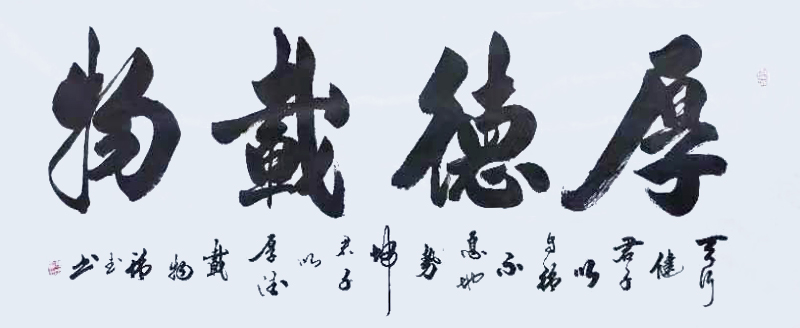 厚德載物
天行健君子以自强不息地勢坤君子以厚德載物 书